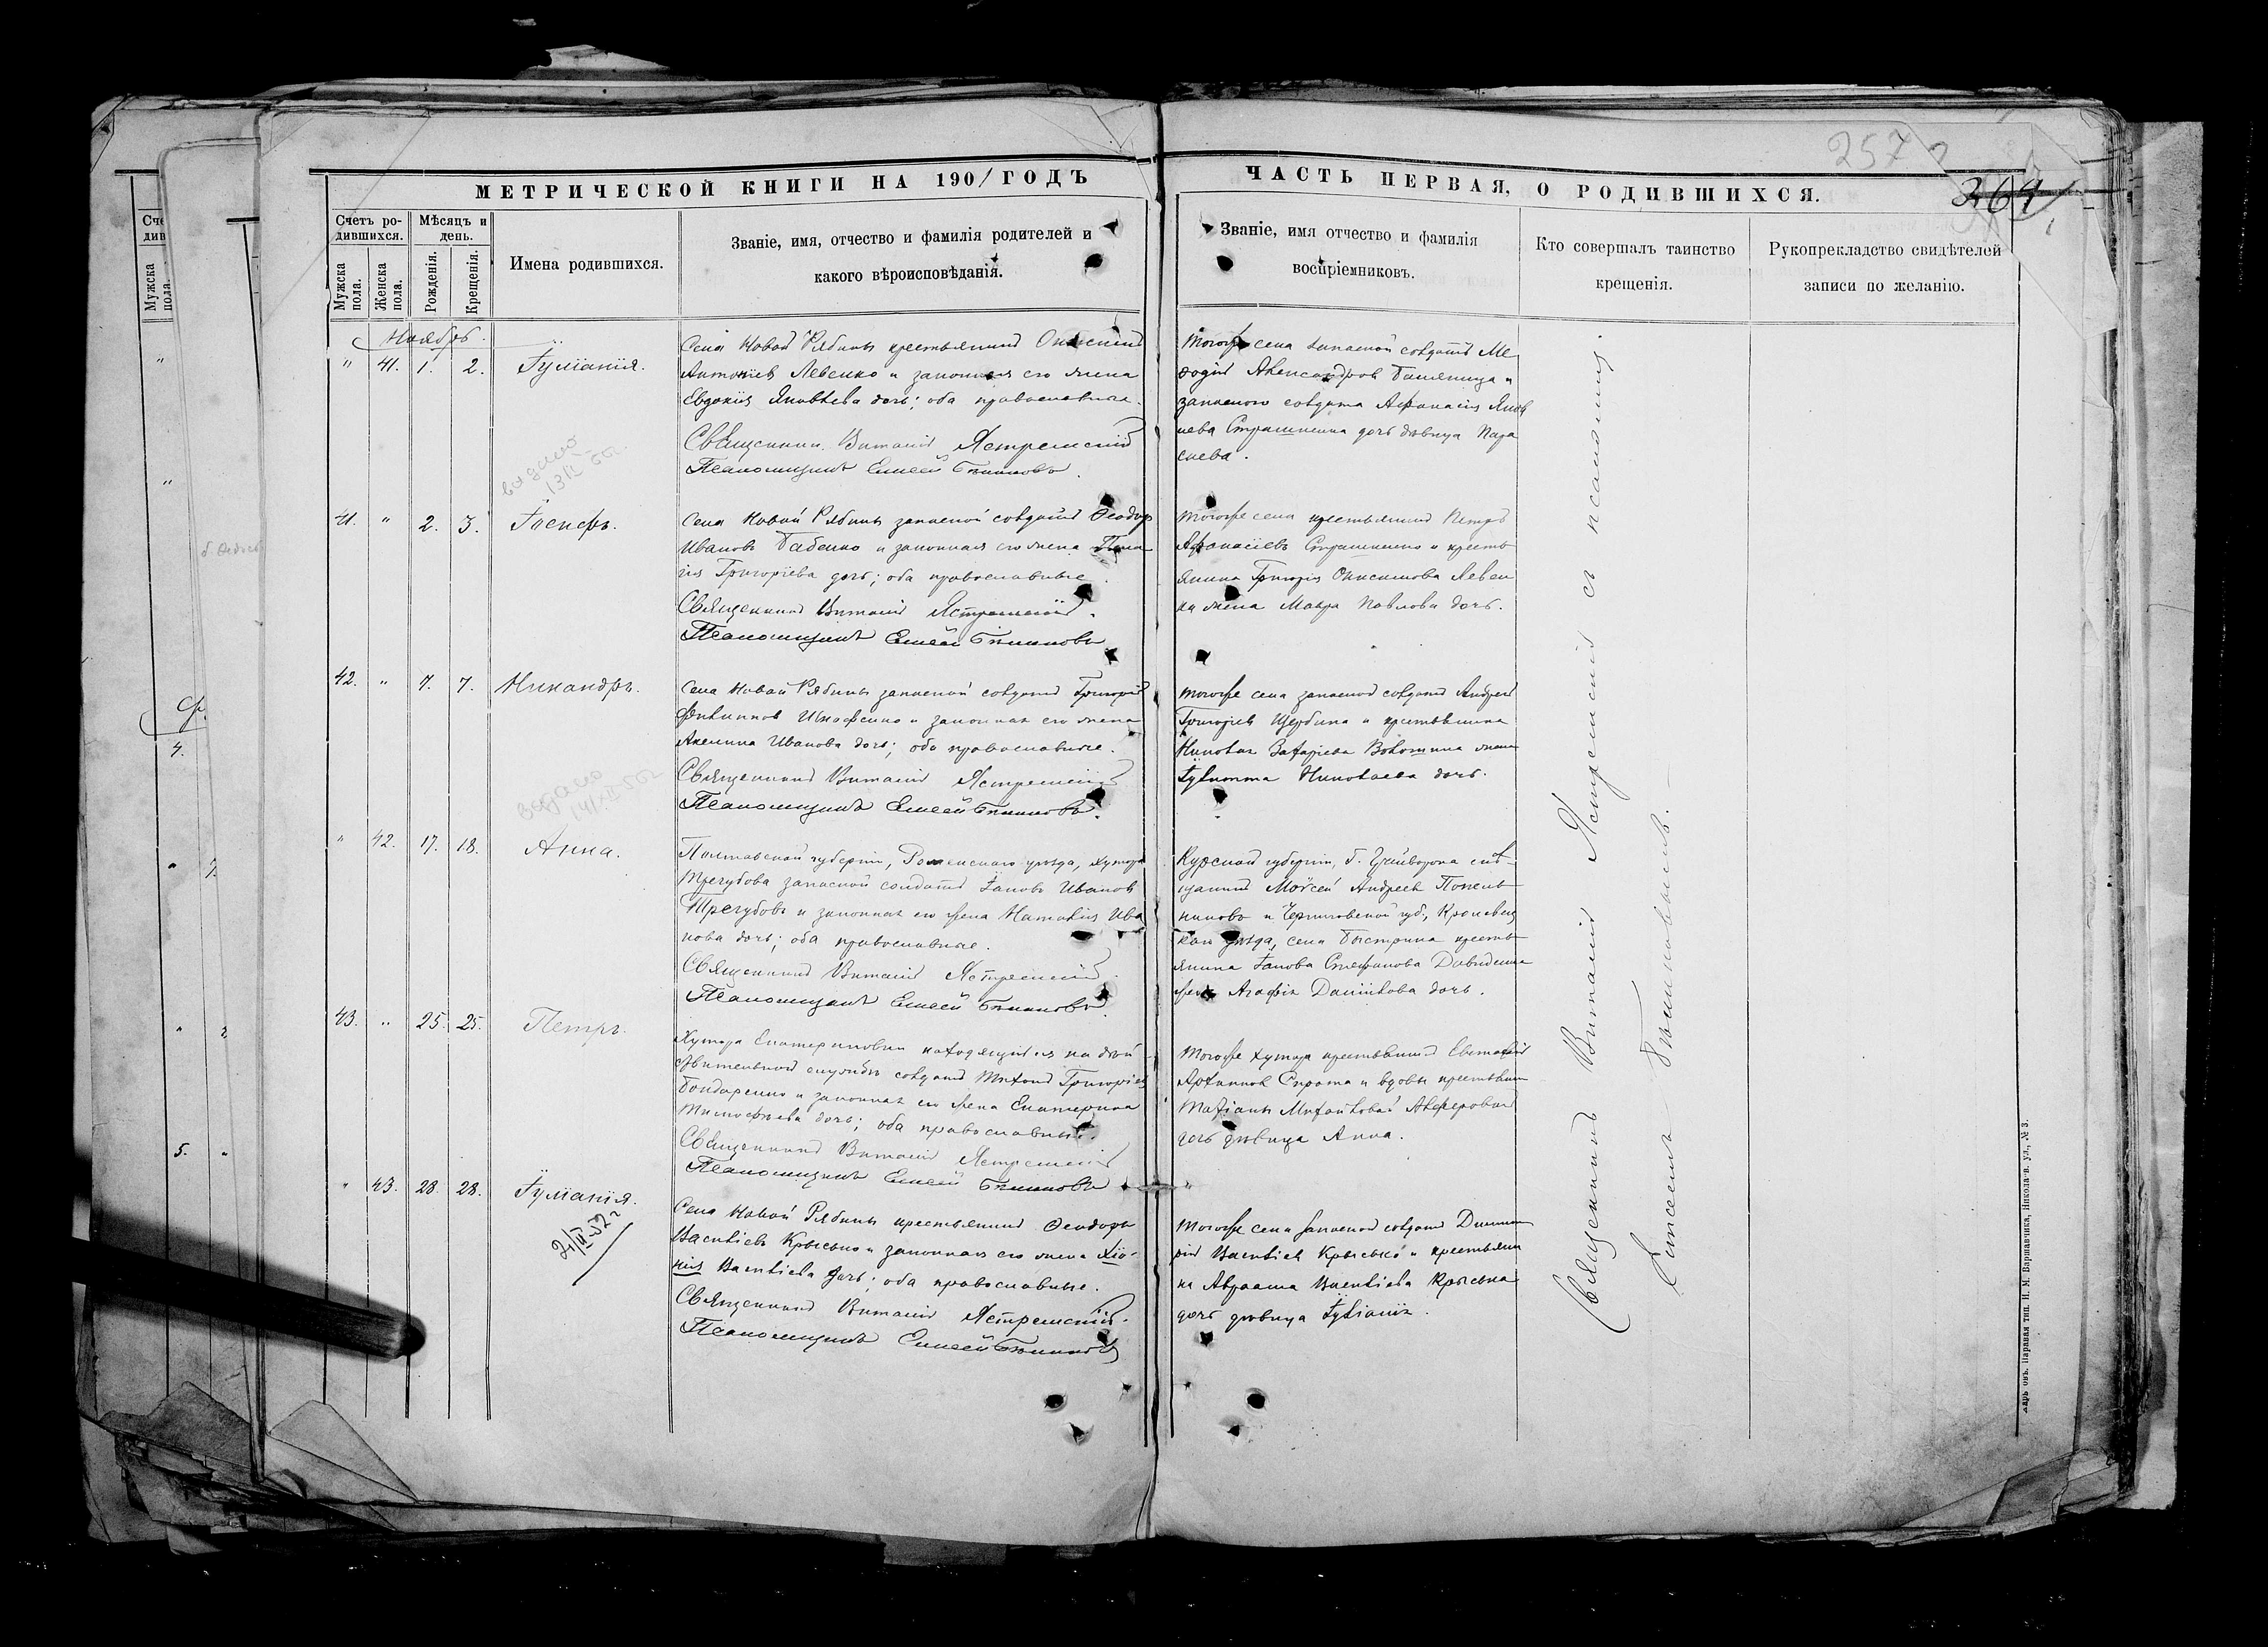 МЕТРИЧЕСКОЙ КНИГИ НА 1901 ГОДЪ
ЧАСТЬ ПЕРВАЯ, О РОДИВШИХСЯ.
257
Счетъ ро-
дившихся.
Мѣсяцъ и
день.
Мужска
пола.
Женска
пола.
Рожденія.
Крещенія.
Имена родившихся.
Званіе, имя, отчество и фамилія родителей и
какого вѣроисповѣданія.
Званіе, имя отчество и фамилія
воспріемниковъ.
Кто совершалъ таинство
крещенія.
Рукоприкладство свидѣтелей
записи по желанію.
Ноябрь.
" 41. 1. 2. Іуліанія.
Села Новой Рябины крестьянинъ Онисимъ
Антоніевъ Левенко и законная его жена
Евдокія Яковлева дочь; оба православные.
Священникъ Виталій Ястремскій
Псаломщикъ Елисей Бѣликовъ.
Тогоже села запасной солдатъ Ме
ѳодій Александровъ и
запасного солдата Аѳанасія Яков
лева Страшненка дочь дѣвица Пара
скева.
выдано
41. " 2. 3. Іосифъ.
Села Новой Рябины запасной солдатъ Ѳеодоръ
Ивановъ Бабенко и законная его жена Пела
гія Григоріева дочь; оба православные.
Священникъ Виталій Ястремскій.
Псаломщикъ Елисей Бѣликовъ.
Тогоже села крестьянинъ Петръ
Аѳанасіевъ Страшненко и кресть
янина Григорія Онисимова Левен
ка жена Мавра Павлова дочь.
42. " 7. 7. Никандръ.
Села Новой Рябины запасной солдатъ Григорій
Филипповъ и законная его жена
Акилина Иванова дочь; оба православные.
Священникъ Виталій Ястремскій
Псаломщикъ Елисей Бѣликовъ.
Тогоже села запасной солдатъ Андрей
Григоріевъ Щербина и крестьянина
Николая Захаріева жена
Іулитта Николаева дочь.
выдано
" 42. 17. 18. Анна.
Полтавской губерніи, Роменскаго уѣзда, хутора
Трегубова запасной солдатъ Іаковъ Ивановъ
Трегубовъ и законная его жена Наталія Ива
нова дочь; оба православные.
Священникъ Виталій Ястремскій
Псаломщикъ Елисей Бѣликовъ.
Курской губерніи, г. Грайворона мѣ-
щанинъ Моѵсей Андреевъ
и Черниговской губ., Кролевец
каго уѣзда, села Быстрика кресть
янина Іакова Стефанова
жена Агафія Даніилова дочь.
43. " 25. 25. Петръ.
Хутора Екатериновки находящійся на дѣй
ствительной службѣ солдатъ Григоріевъ
Бондаренко и законная его жена Екатерина
Тимоѳеева дочь; оба православные.
Священникъ Виталій Ястремскій
Псаломщикъ Елисей Бѣликовъ
Тогоже хутора крестьянинъ Евстафій
Архиповъ Сирота и вдовы крестьянки
дочь дѣвица Анна.
" 43. 28. 28. Іуліанія.
Села Новой Рябины крестьянинъ Ѳеодоръ
Васильевъ Крысько и законная его жена Хіо-
нія Васильева дочь; оба православные.
Священникъ Виталій Ястремскій.
Псаломщикъ Елисей Бѣликовъ
Тогоже села запасной солдатъ Димит
рій Васильевъ Крысько и крестьяни
на Авраама Васильева Крыська
дочь дѣвица Іуліанія.
Священникъ Виталій Ястремскій съ псаломщ.
Елисеемъ Бѣликовымъ.